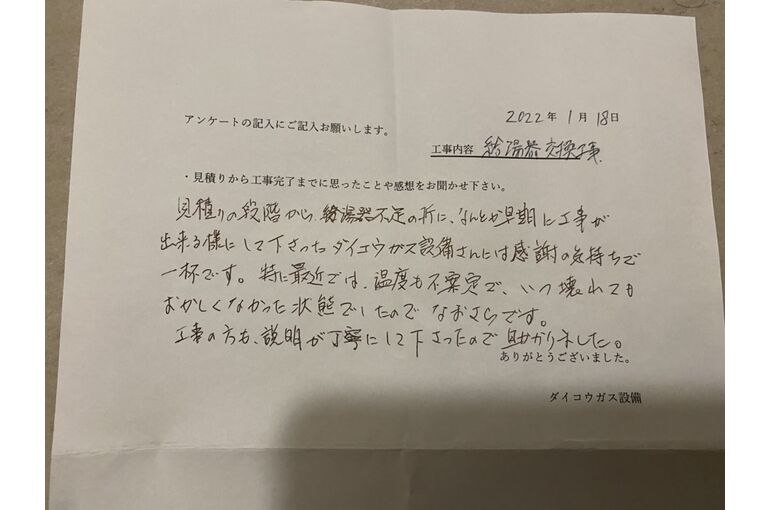 2022年 1月 18日
アンケートの記入にご記入お願いします。
工事内容 給湯器交換工事
・見積りから工事完了までに思ったことや感想をお聞かせ下さい。
見積りの段階から、給湯器不足の折に、なんとか早期に工事が
出来る様にして下さったダイコウガス設備さんには感謝の気持ちで
一杯です。特に最近では、温度も不安定で、いつ壊れても
おかしくなかった状態でしたのでなおさらです。
工事の方も、説明が丁寧にして下さったので助かりました。
ありがとうございました。
ダイコウガス設備